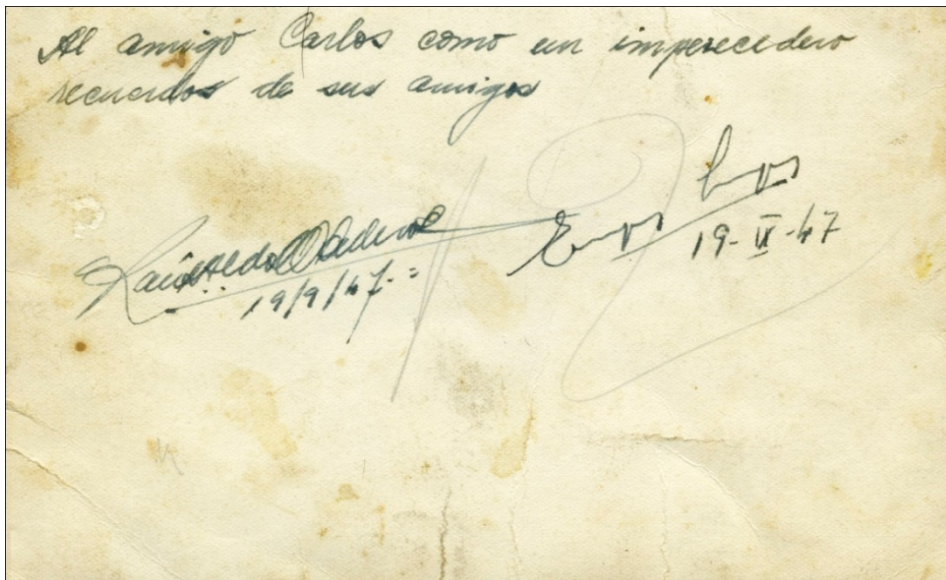 Al amigo Carlos como un imperecedero
recuerdos de sus amigos
19/9/47.=
19-VI-47